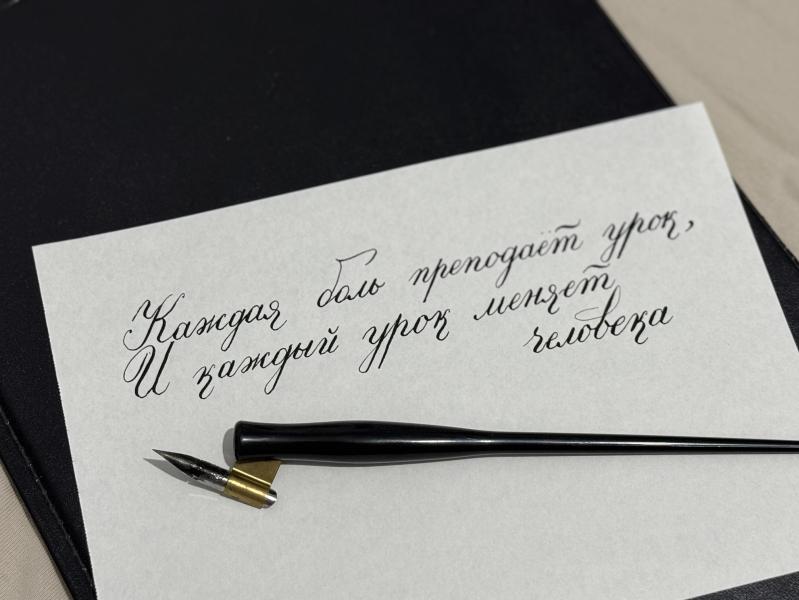 Каждая боль преподаёт урок,
И каждый урок меняет
человека